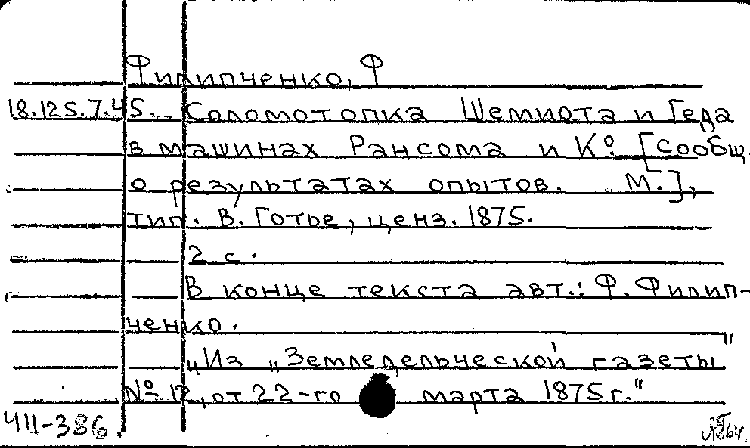 Филипченко, Ф
18.125.7.45. Соломотопка Шемиота и Геда
в машинах Рансома и К°. [Сообщ.
о результатах опытов. М.],
тип. В. Готье, ценз. 1875.
2 с.
В конце текста авт.: Ф. Филип-
ченко.
„Из „Земледельческой газеты"
№ 12, от 22-го марта 1875 г."
Ч11-386.